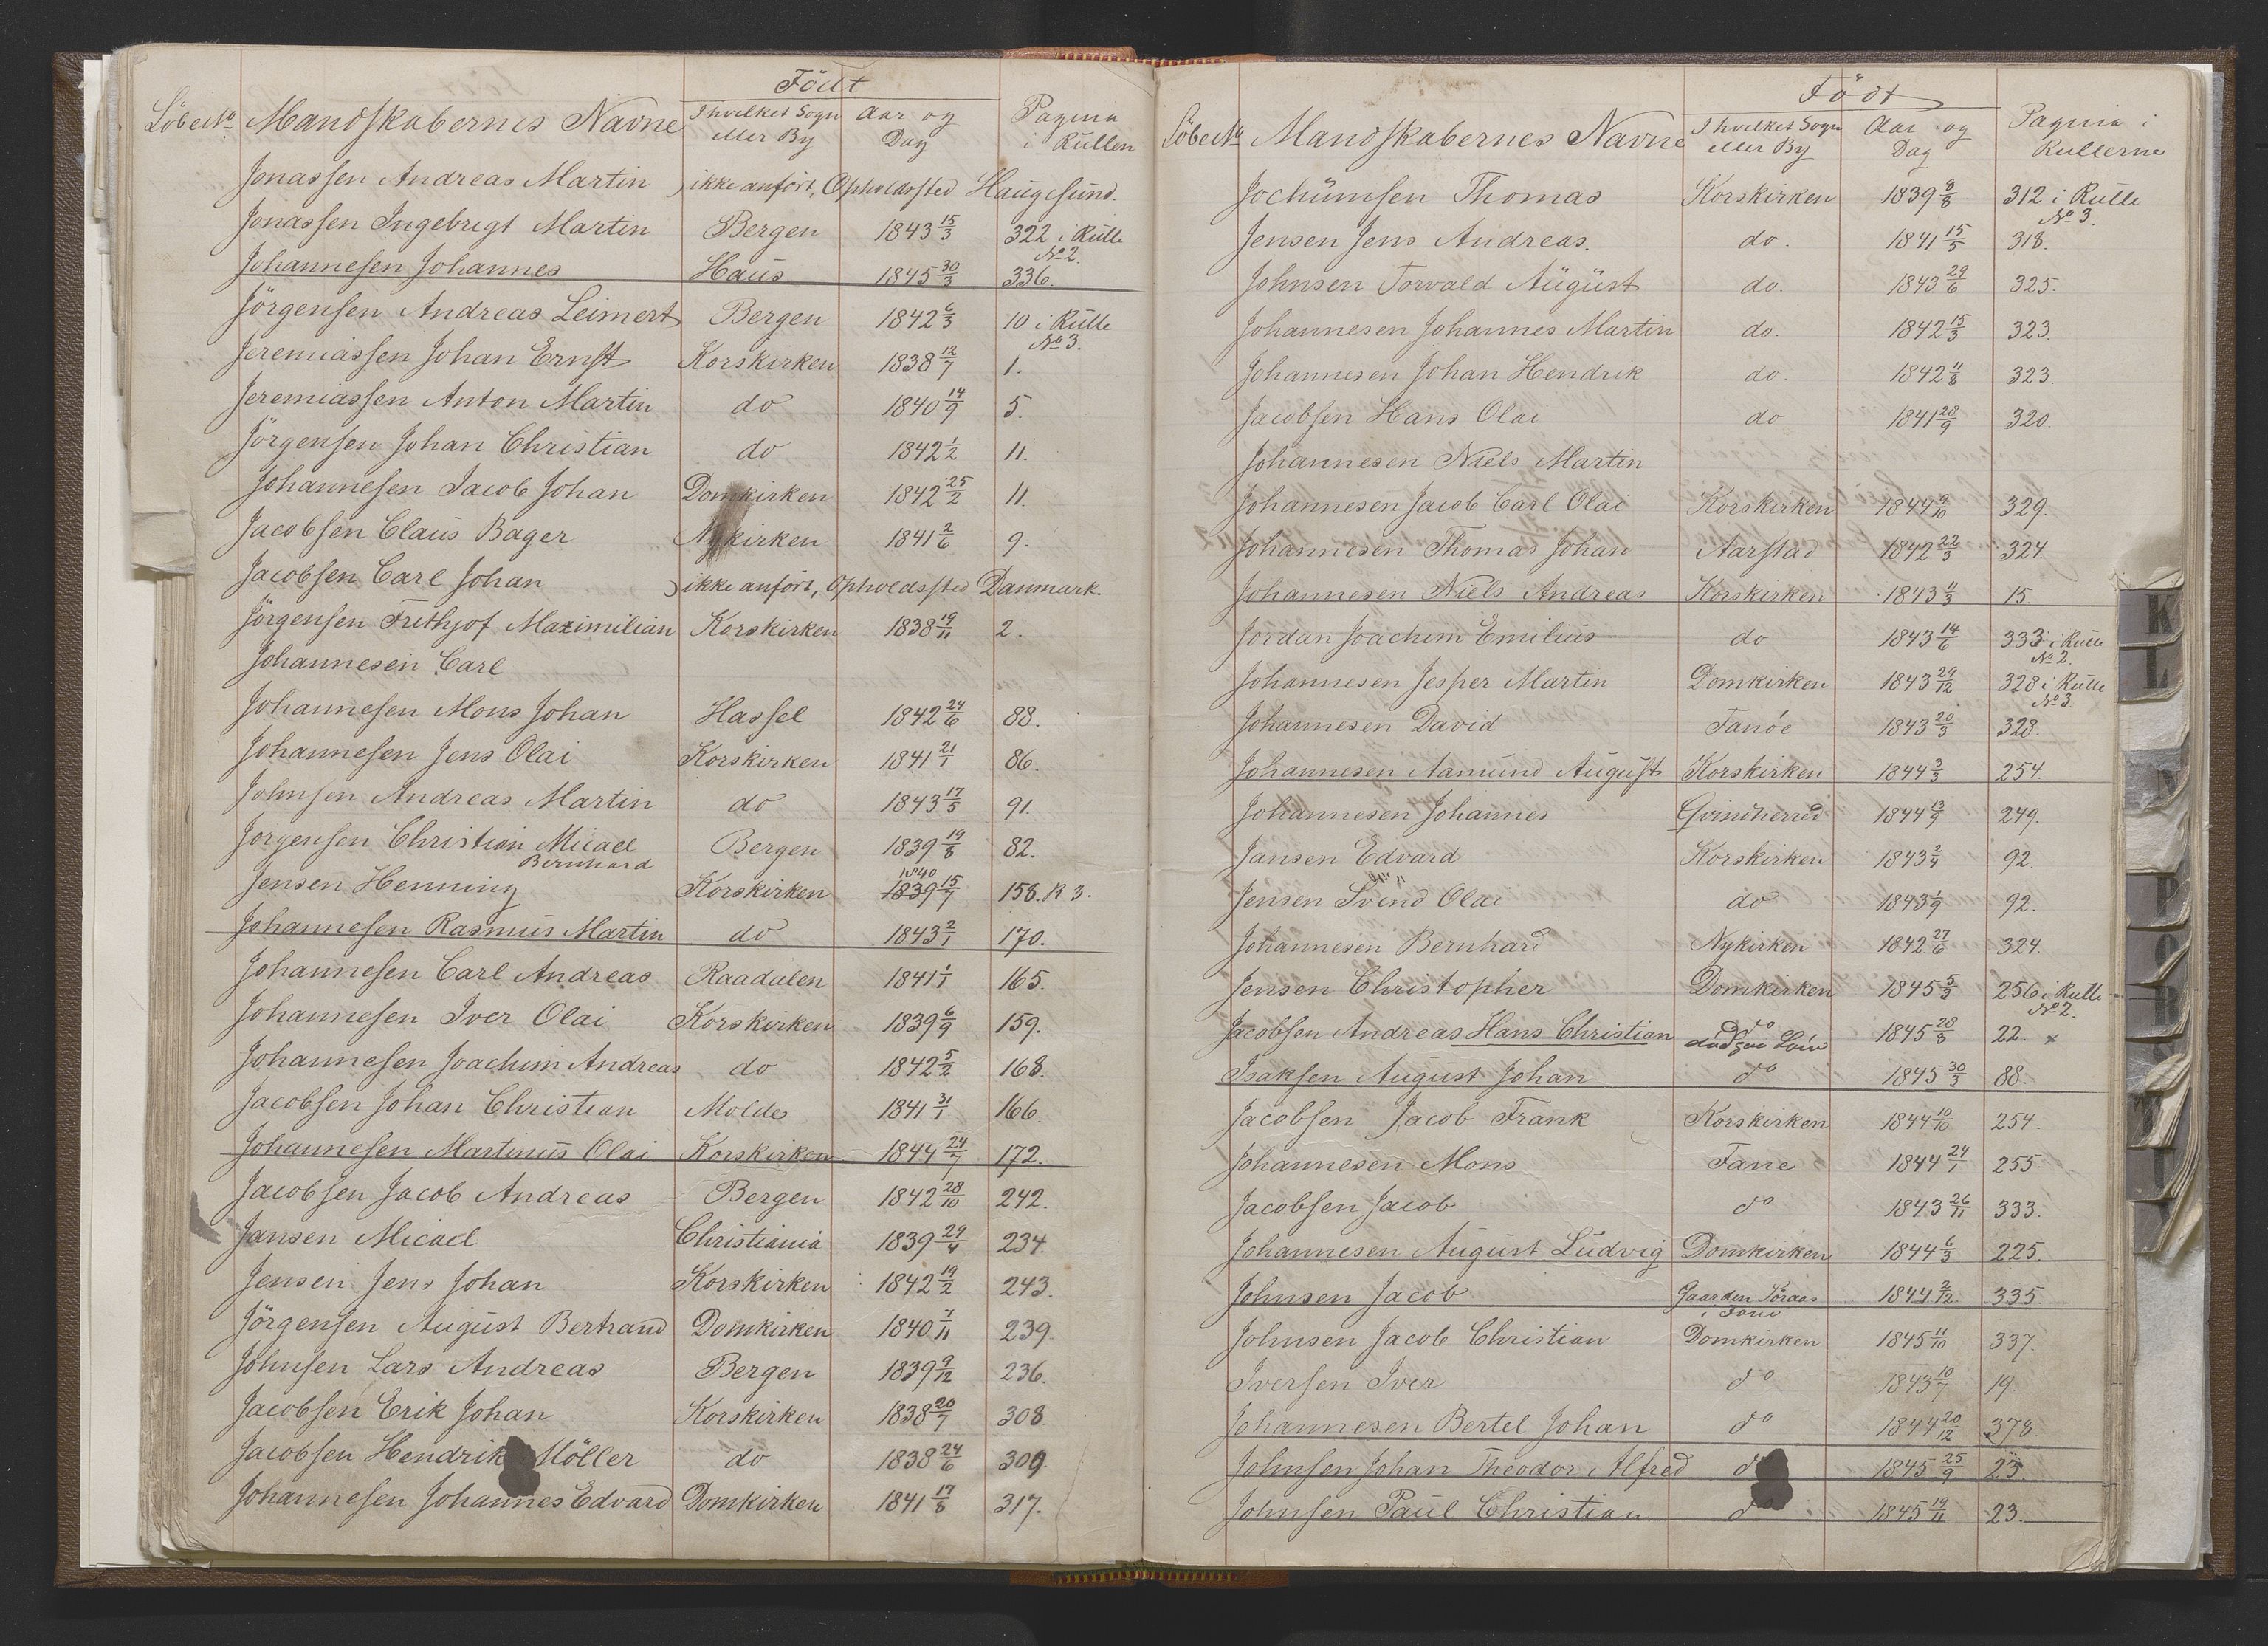 Födt
LöbeNo Mandskabernes Navne I hvilket Sogn eller By Aar og Dag Pagina i Rullen
Jonassen Andreas Martin ikke anfört, Opholdssted Haugesund.
Jonassen Ingebrigt Martin Bergen 1843 15/3 322 i Rulle No 2.
Johannesen Johannes Haus 1845 30/3 336.
Jörgensen Andreas Leimert Bergen 1842 6/3 10 i Rulle No 3.
Jeremiassen Johan Ernst Korskirken 1838 12/7 1.
Jeremiassen Anton Martin do 1840 14/9 5.
Jörgensen Johan Christian do 1842 1/2 11.
Johannesen Jacob Johan Domkirken 1842 25/2 11.
Jacobsen Claus Bager Nykirken 1841 2/6 9.
Jacobsen Carl Johan ikke anfört, Opholdssted Danmark.
Jörgensen Frithjof Maximilian Korskirken 1838 19/11 2.
Johannesen Carl
Johannesen Mons Johan Hassel 1842 24/6 88.
Johannesen Jens Olai Korskirken 1841 21/1 86.
Johnsen Andreas Martin do 1843 17/5 91.
Jorgensen Christian Micael Bernhard Bergen 1839 19/8 82.
Jensen Henning Korskirken 1839 1840 15/7 158. R 3.
Johannesen Rasmus Martin do 1843 2/1 170.
Johannesen Carl Andreas Raadalen 1841 1/1 165.
Johannesen Iver Olai Korskirken 1839 6/9 159.
Johannesen Joachim Andreas do 1842 5/2 168.
Jacobsen Johan Christian Molde 1841 31/1 166.
Johannesen Martinus Olai Korskirken 1844 24/7 172.
Jacobsen Jacob Andreas Bergen 1842 28/10 242.
Jansen Micael Christiania 1839 29/4 234.
Jensen Jens Johan Korskirken 1842 19/2 243.
Jörgensen August Bertrand Domkirken 1840 7/11 239.
Johnsen Lars Andreas Bergen 1839 9/12 236.
Jacobsen Erik Johan Korskirken 1838 20/7 308.
Jacobsen Hendrik Möller do 1838 24/6 309
Johannesen Johannes Edvard Domkirken 1841 17/8 317.
Födt
LöbeNo Mandskabernes Navne I hvilket Sogn eller By Aar og Dag Pagina i Rullerne
Jochümsen Thomas Korskirken 1839 8/8 312 i Rulle No 3.
Jensen Jens Andreas. do. 1841 15/5 318.
Johnsen Torvald August do. 1843 29/6 325.
Johannesen Johannes Martin do. 1842 15/3 323.
Johannesen Johan Hendrik do. 1842 11/8 323.
Jacobsen Hans Olai do 1841 28/9 320.
Johannesen Niels Martin
Johannesen Jacob Carl Olai Korskirken 1844 9/10 329.
Johannesen Thomas Johan Aarstad 1842 22/3 324.
Johannesen Niels Andreas Korskirken 1843 11/3 15.
Jordan Joachim Emilius do 1843 14/6 333 i Rulle No 2.
Johannesen Jesper Martin Domkirken 1843 29/12 328 i Rulle No 3.
Johannesen David Fanöe 1843 20/3 328.
Johannesen Aamund August Korskirken 1844 3/3 254.
Johannesen Johannes Qvindherred 1844 13/9 249.
Jansen Edvard Korskirken 1843 2/9 92.
Jensen Svend Olai do 1843 1/9 92.
Johannesen Bernhard Nykirken 1842 27/6 324.
Jensen Christopher Domkirken 1845 5/3 256 i Rulle No 2.
Jacobsen Andreas Hans Christian do 1845 28/8 22. x
Isaksen August Johan do 1845 30/3 88.
Jacobsen Jacob Frank Korskirken 1844 10/10 254.
Johannesen Mons Fane 1844 24/1 255.
Jacobsen Jacob do 1843 26/11 333.
Johannesen August Ludvig Domkirken 1844 6/3 225.
Johnsen Jacob Gaarden Söraas i Fane 1844 2/12 335.
Johnsen Jacob Christian Domkirken 1845 11/10 337.
Iversen Iver do 1843 10/7 19.
Johannesen Bertel Johan do 1844 20/12 378.
Johnsen Johan Theodor Alfred do 1845 25/9 23.
Johnsen Paul Christian do 1845 19/11 23.
K
L
N
P
Q
R